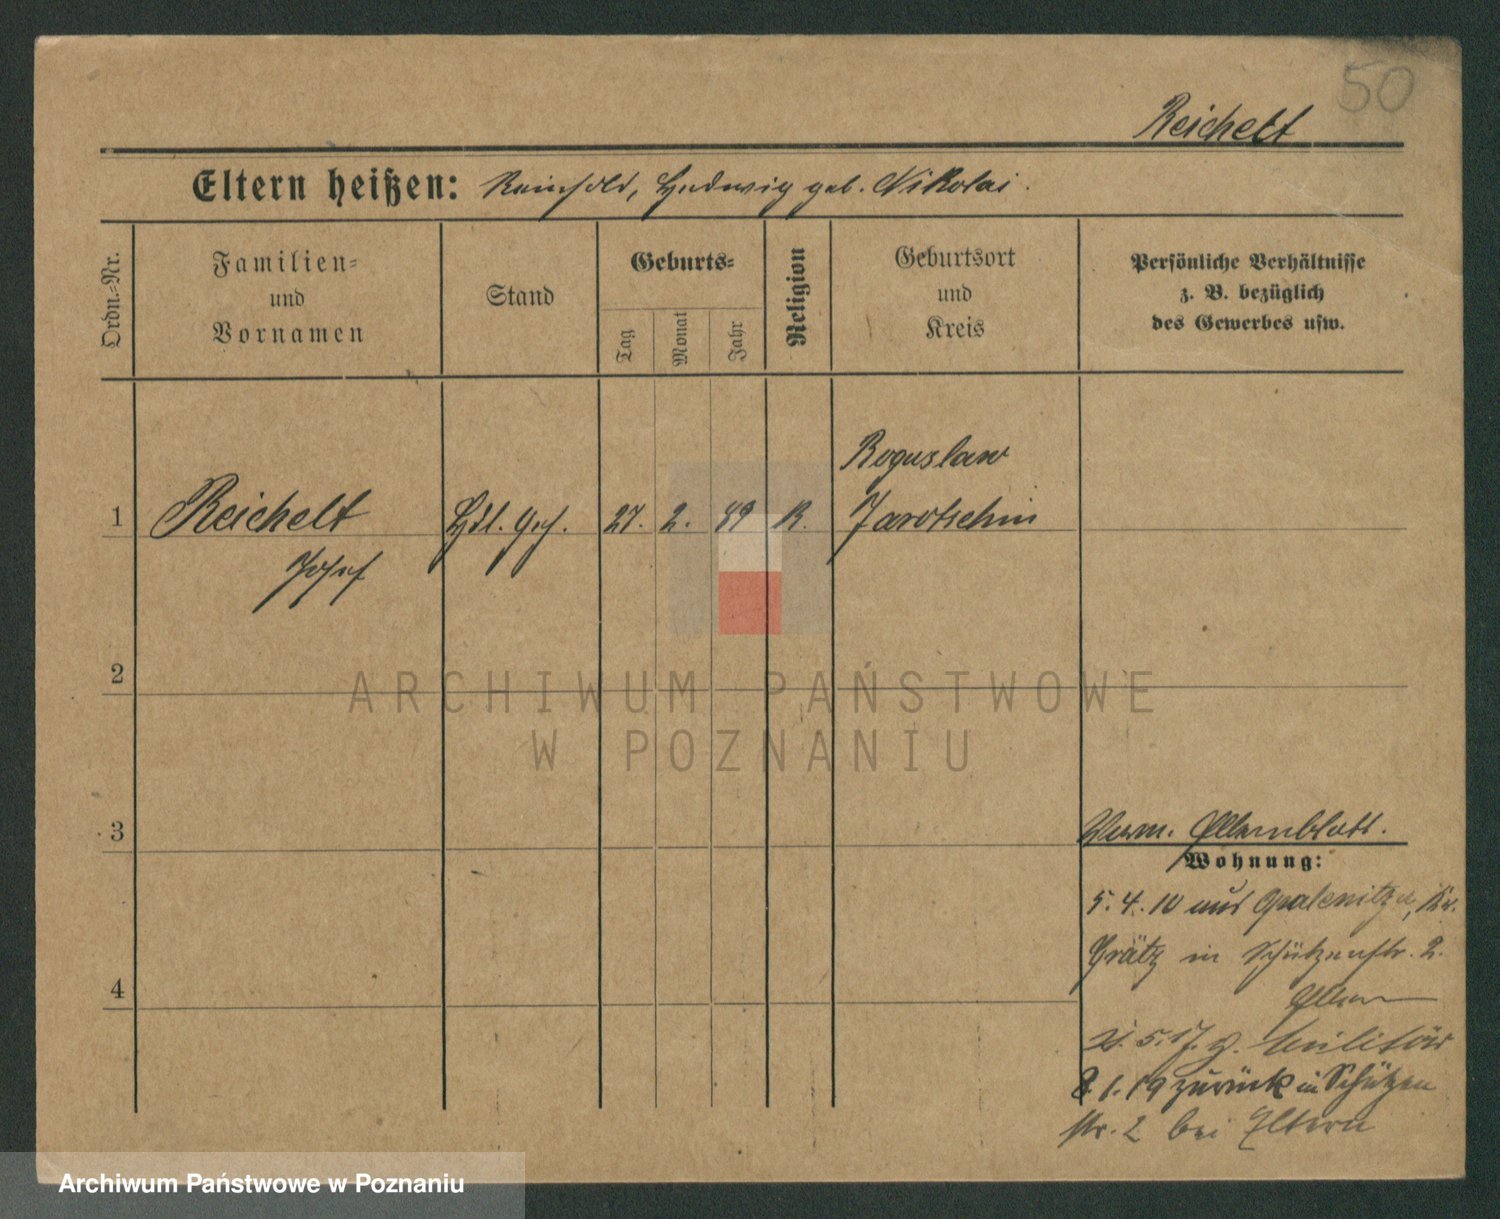 50
Reichelt
Eltern heißen: Reinhold, Hedwig geb. Nikolai.
Ordn.=Nr.
Familien=
und
Vornamen
Stand
Geburts=
Tag
Monat
Jahr
Religion
Geburtsort
und
Kreis
Persönliche Verhältnisse
z. B. bezüglich
des Gewerbes usw.
Boguslaw
1 Reichelt Hdl. Geh. 27. 2. 89 K. Jarotschin
Josef
2
3
4
Verm. Elternblatt.
Wohnung:
5. 4. 10 aus Opalenitza, Kr.
Grätz in Schützenstr. 2.
Eltern
5. 17. z. Militär
8. 1. 19 zurück in Schützen
str. 2 bei Eltern
ARCHIWUM PAŃSTWOWE
W POZNANIU
Archiwum Państwowe w Poznaniu